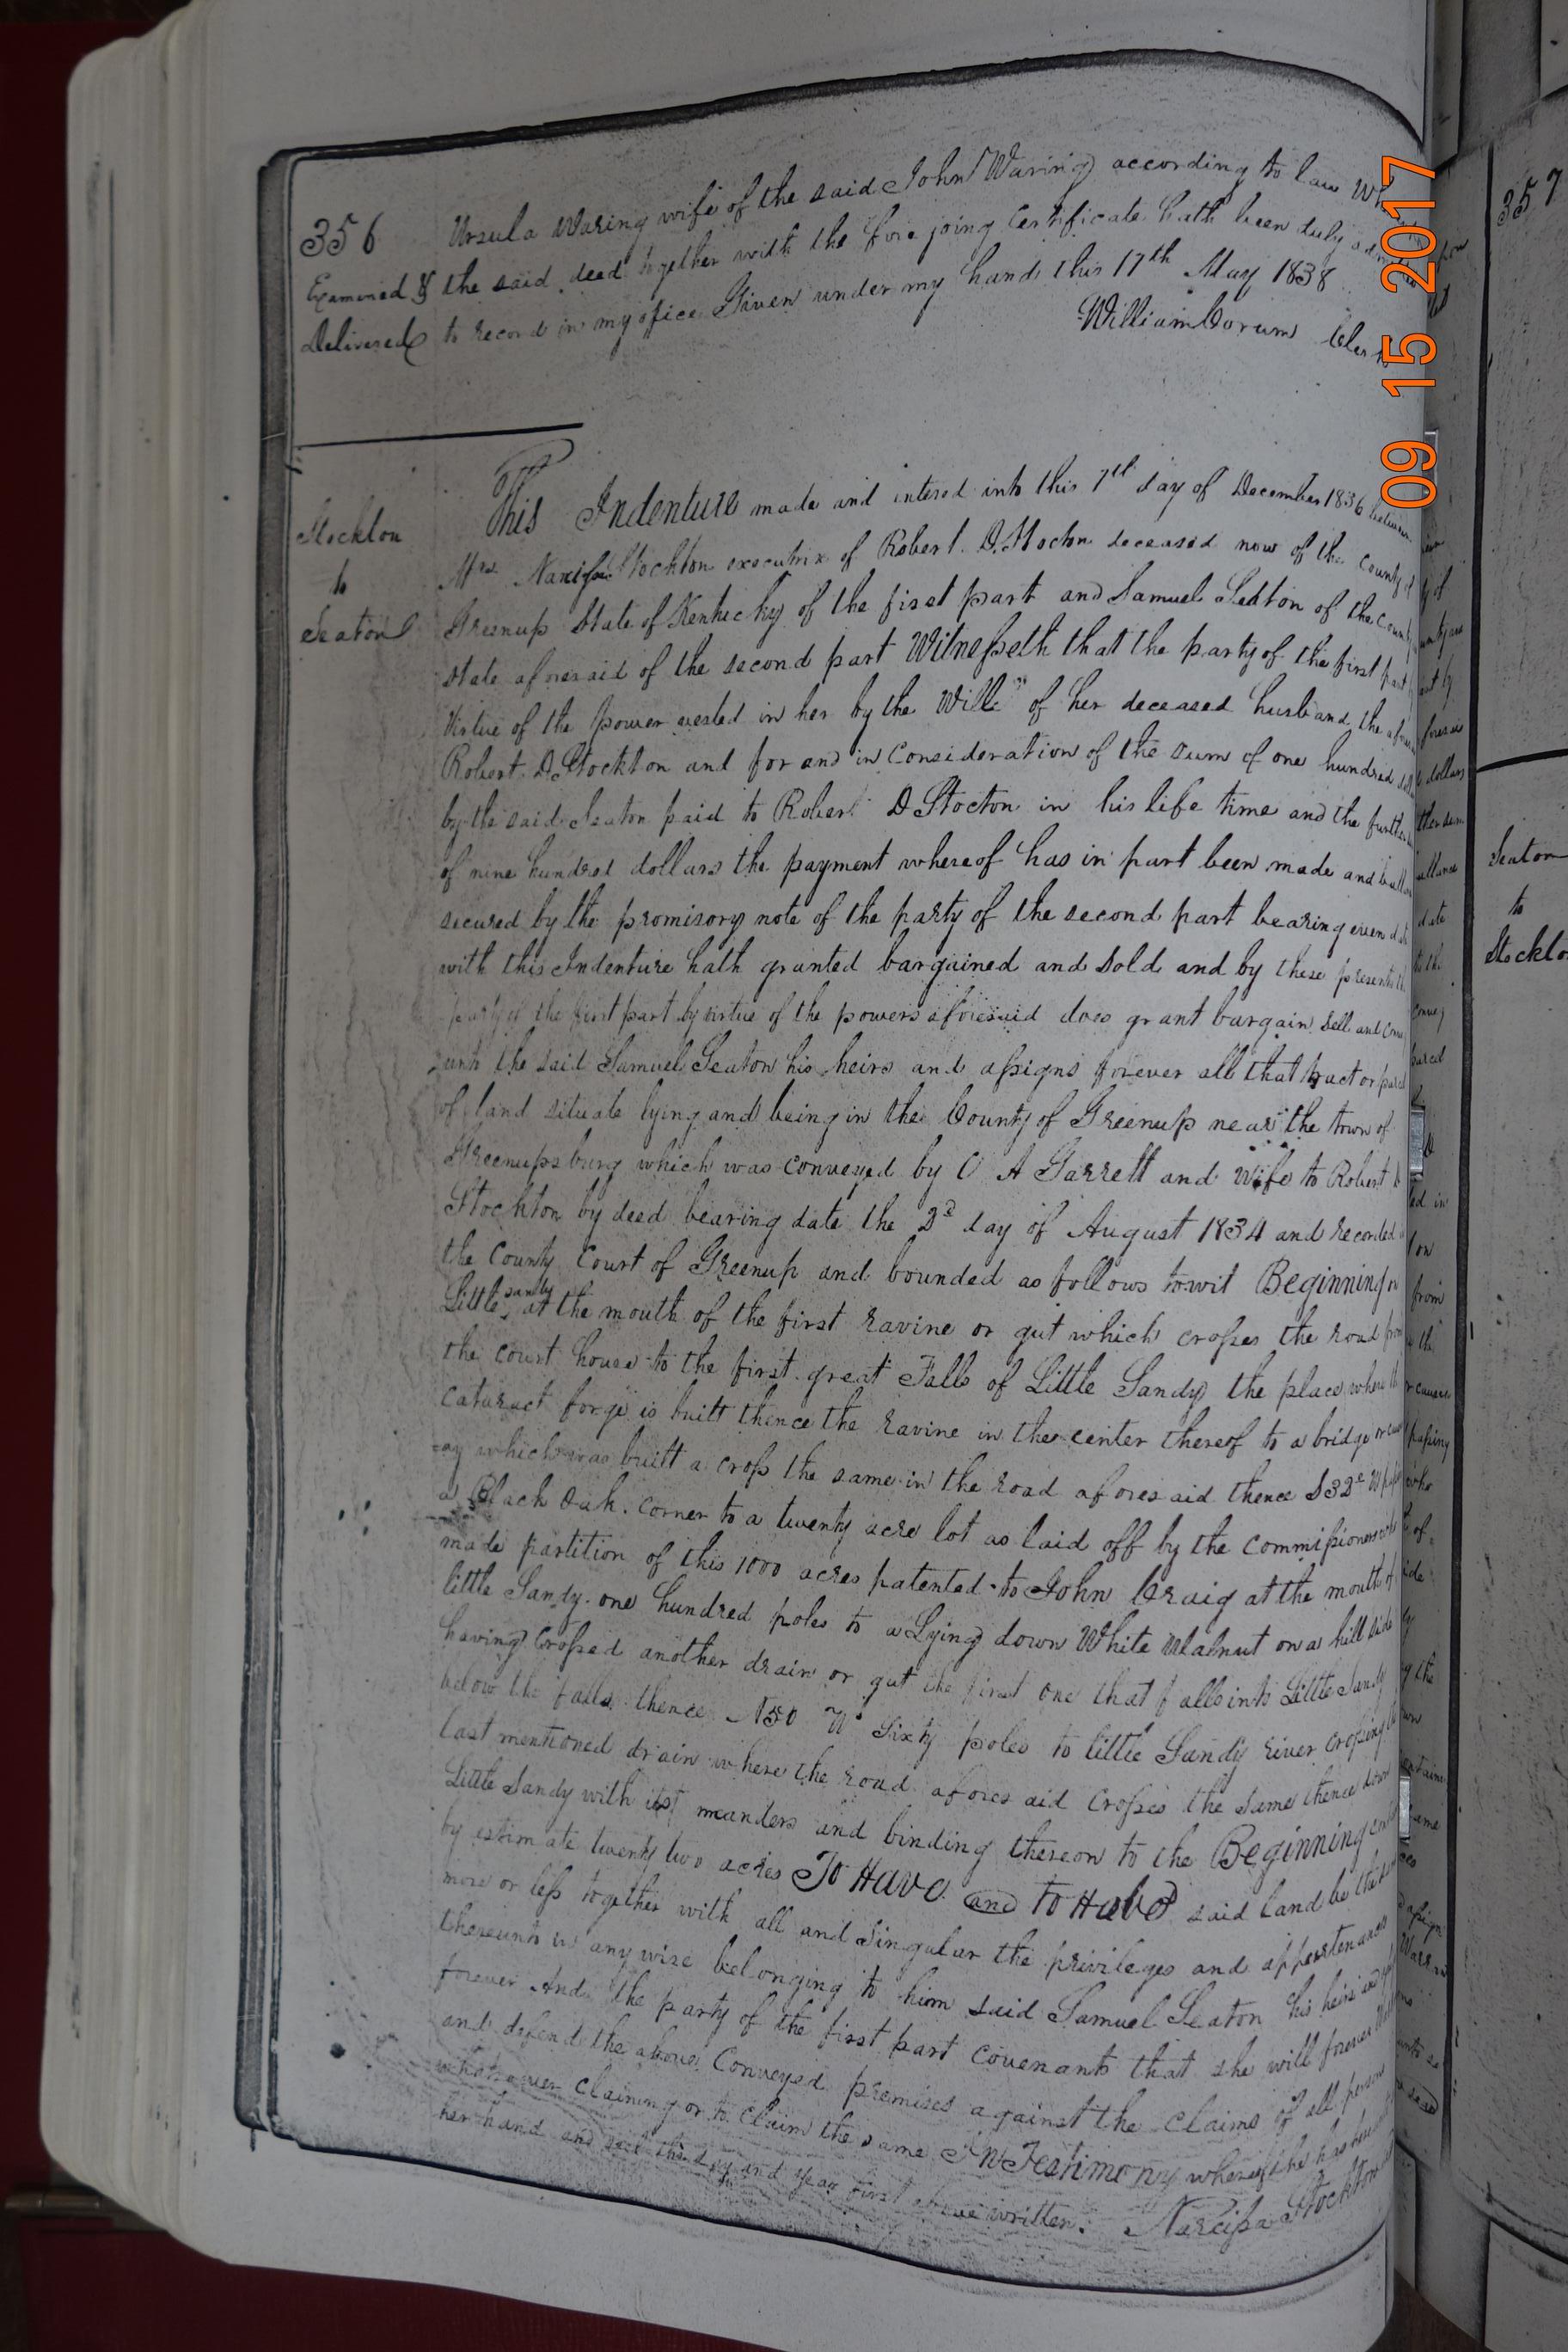 356
Ursula Waring wife of the said John Waring according to law Wh
Examined &
the said deed together with the fore going Certificate hath been duly
Delivered
to record in my office Given under my hand this 17th May 1838
William Corum Clerk
Stockton
to
Seaton
This Indenture made and intered into this 7th day of December 1836 between
Mrs Narcissa Stockton executrix of Robert D. Stocton deceased now of the County of
Greenup State of Kentucky of the first part and Samuel Seaton of the County
state aforesaid of the second part Witnesseth that the party of the first part by
Virtue of the power vested in her by the Will of her deceased husband the aforesaid
Robert D. Stockton and for and in Consideration of the sum of one hundred dollars
by the said Seaton paid to Robert D Stocton in his life time and the further sum
of nine hundred dollars the payment whereof has in part been made and ballance
secured by the promisory note of the party of the second part bearing even date
with this Indenture hath granted bargained and Sold and by these presents the
party of the first part by virtue of the powers aforesaid does grant bargain Sell and Convey
unto the said Samuel Seaton his heirs and assigns forever all that tract or parcel
of land situate lying and being in the County of Greenup near the town of
Greenupsburg which was conveyed by C A Garrett and wife to Robert D
Stockton by deed bearing date the 2d day of August 1834 and recorded in
the County Court of Greenup and bounded as follows towit Beginning on
Little sandy at the mouth of the first ravine or gut which crosses the road from
the court house to the first great Falls of Little Sandy the place where the
cataract forge is built thence the ravine in the center thereof to a bridge or causew
ay which was built a cross the same in the road afores aid thence S32 W passing
a Black Oak corner to a twenty acre lot as laid off by the Commissioners who
made partition of this 1000 acres patented to John Craig at the mouth of
little Sandy one hundred poles to a Lying down White Walnut on a hill side
having Crossed another drain or gut the first one that falls into Little Sandy
below the falls thence N50 W Sixty poles to little Sandy river crossing the
last mentioned drain where the road afores aid Crosses the Same thence down
Little Sandy with its meanders and binding thereon to the Beginning containe
by estimate twenty two acres To Have and to Have said land be the same
more or less together with all and Singular the privileges and appertenances
thereunto in any wise belonging to him said Samuel Seaton his heirs and assigns
forever And the party of the first part covenants that she will forever Warran
and defend the above Conveyed premises against the claims of all persons
whatsoever claiming or to Claim the same In Testimony whereof she has
her hand and seal the day and year first above written. Narcissa Stockton
09 15 2017
357
Seaton
to
Stockto